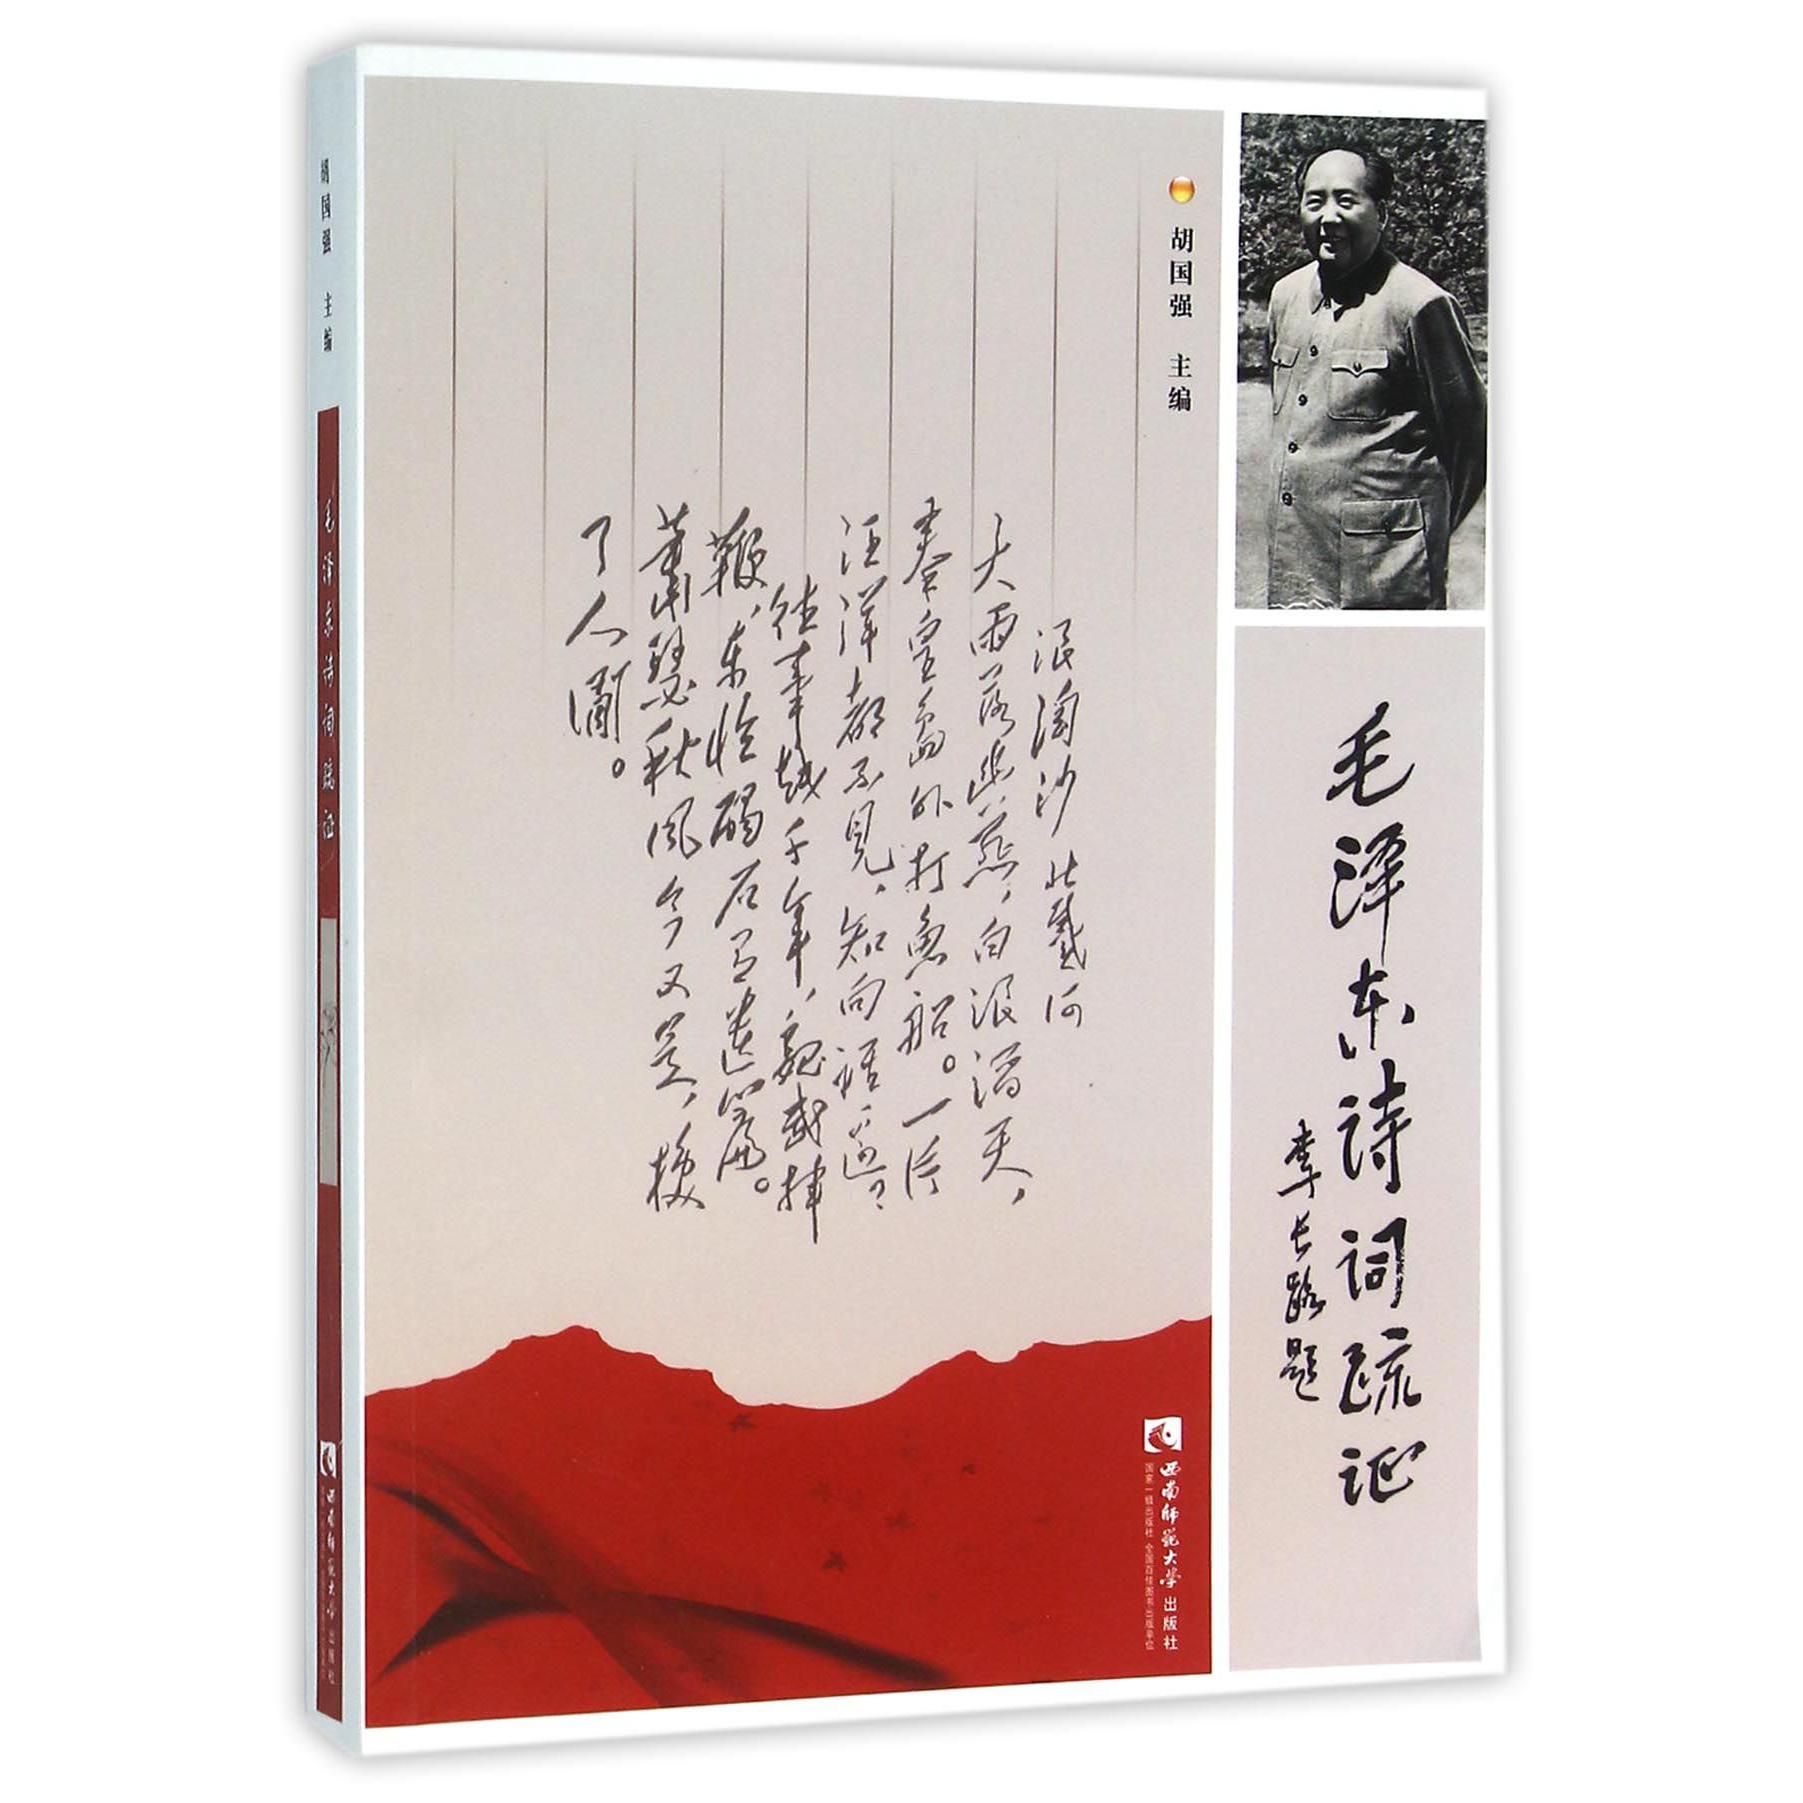 胡国强 主编
毛泽东诗词疏证
西南师范大学出版社
胡国强 主编
浪淘沙 北戴河
大雨落幽燕，白浪滔天，
秦皇岛外打魚船。一片
汪洋都不見，知向誰边？
往事越千年，魏武挥
鞭，东临碣石有遗篇。
萧瑟秋风今又是，换
了人间。
毛泽东诗词疏证
李长路题
西南师范大学出版社
国家一级出版社 全国百佳图书出版单位